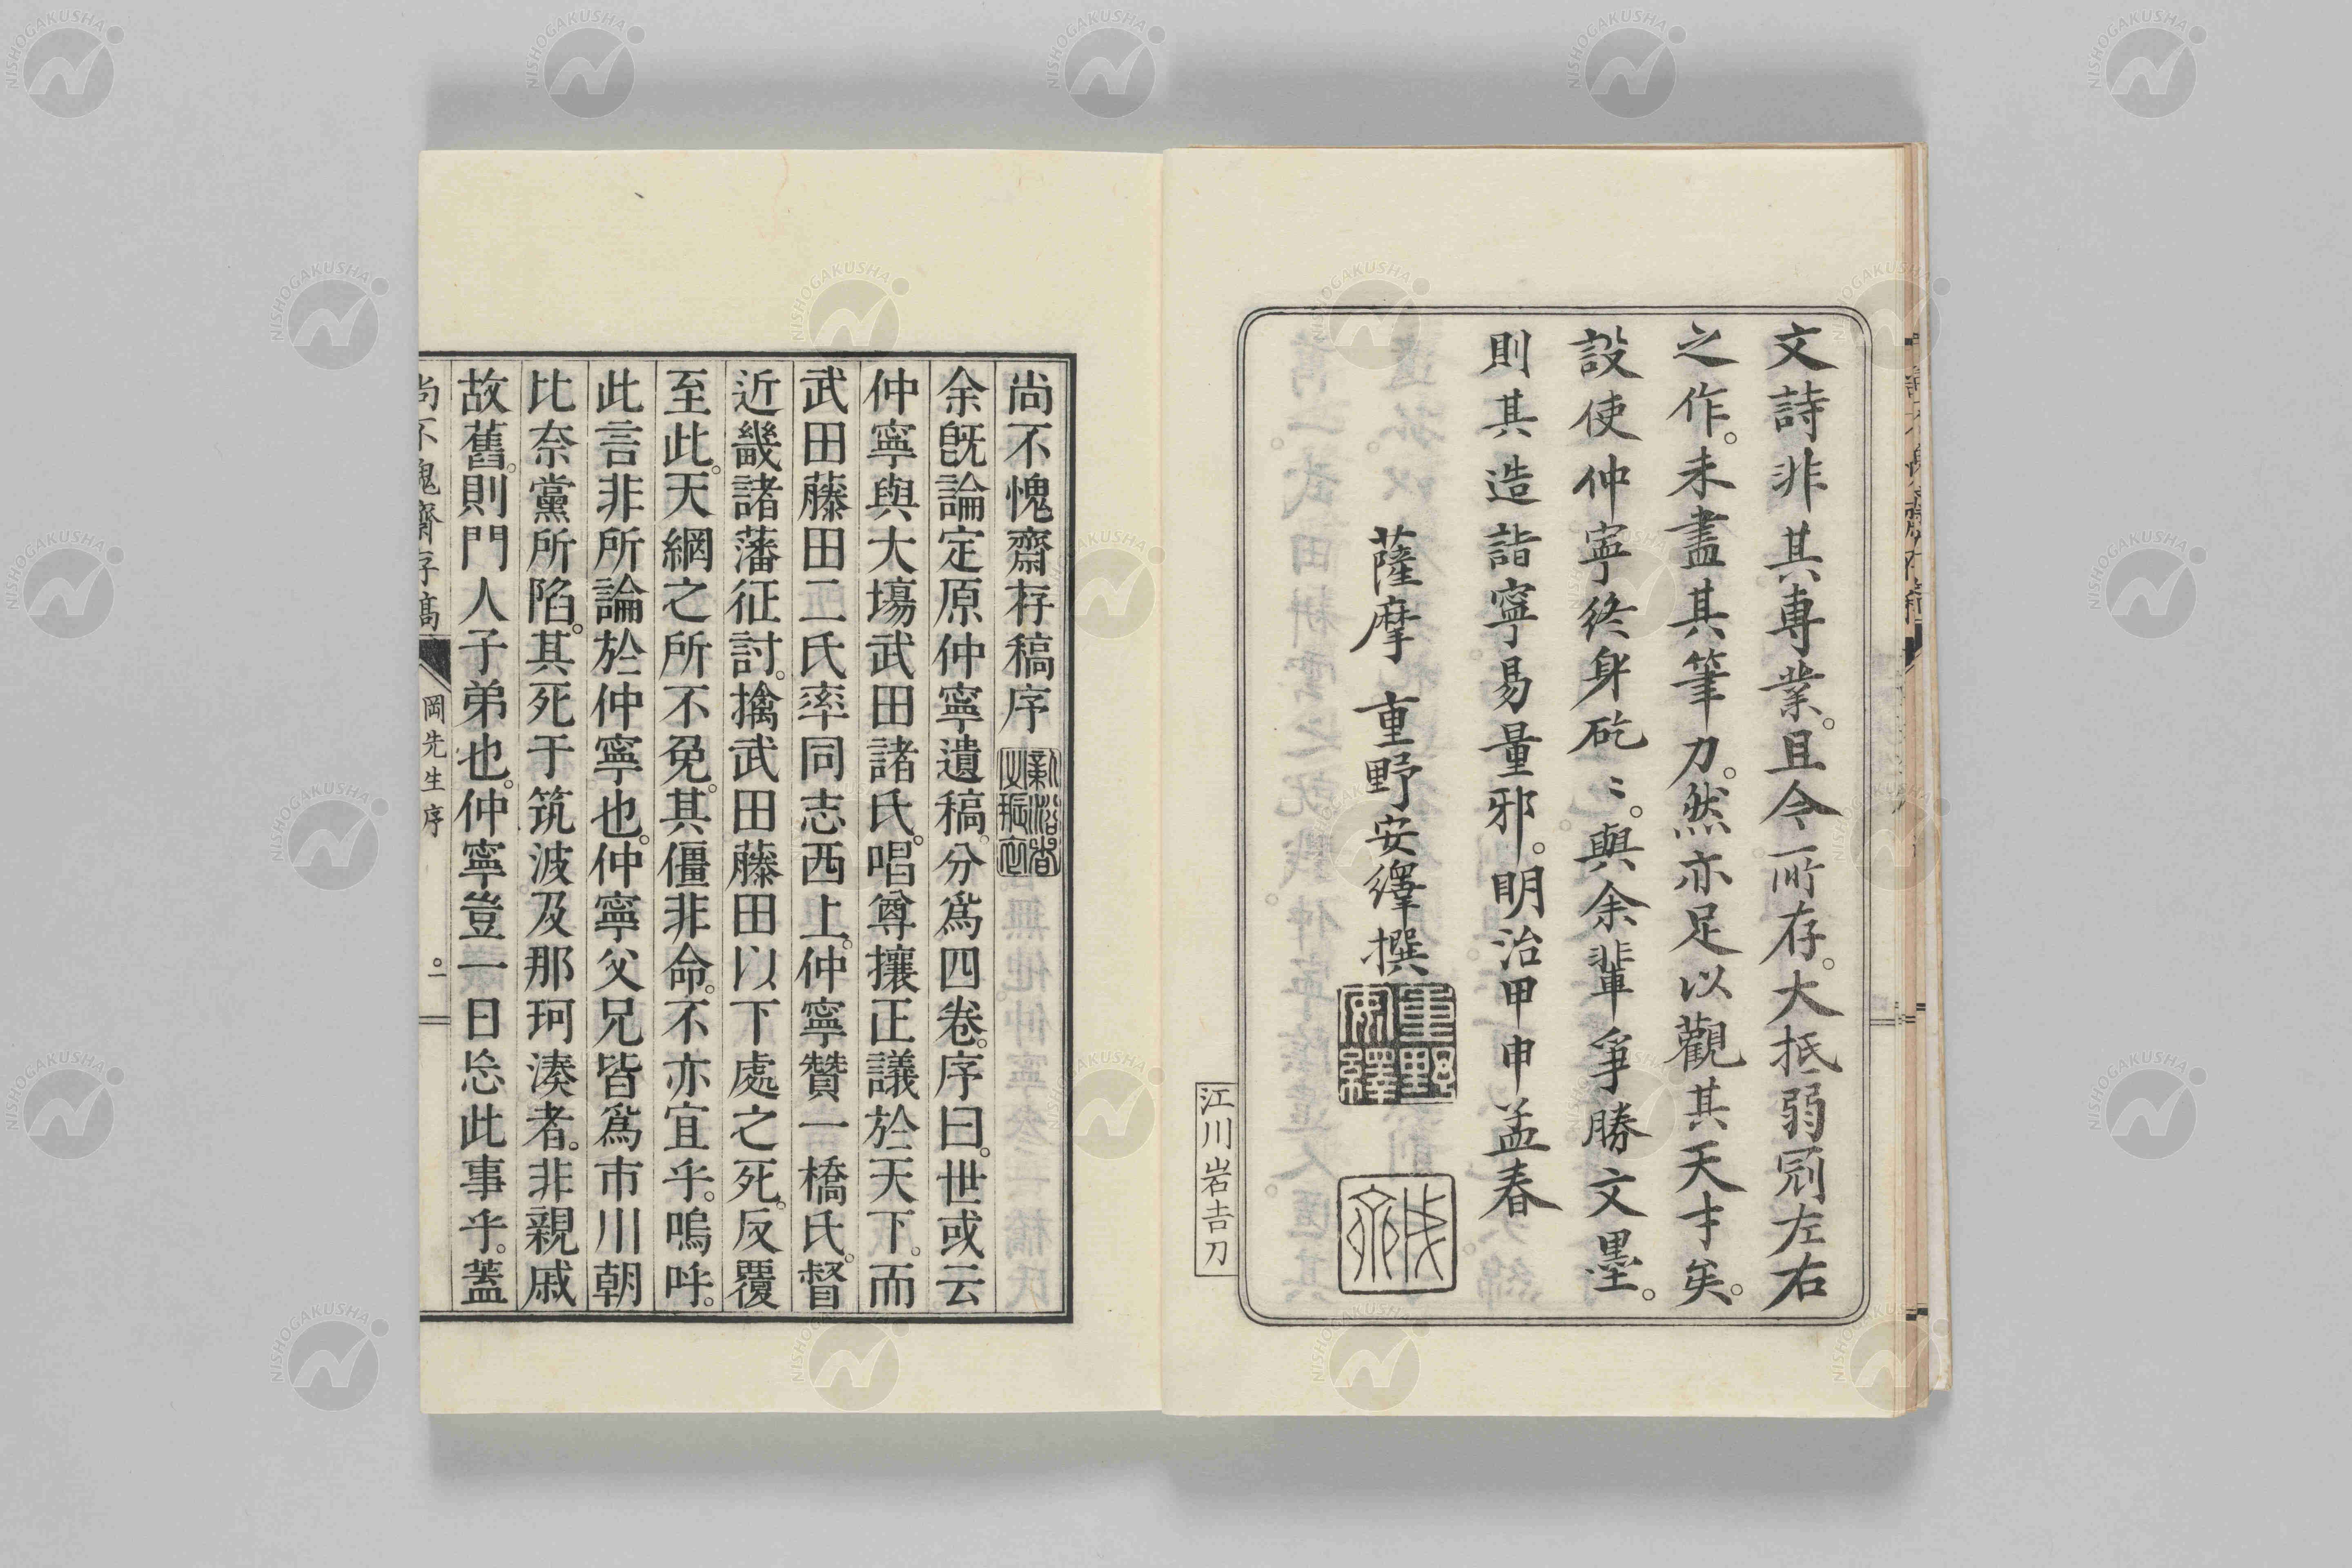 文詩非其專業。且今所存。大抵弱冠左右
之作。未盡其筆力。然亦足以觀其天才矣。
設使仲寧終身矻〻。與余輩爭勝文墨。
則其造詣寧易量邪。明治甲申孟春
薩摩 重野安繹撰
重野安繹
成齋
江川岩吉刀
尚不愧齋存稿序
余既論定原仲寧遺稿。分爲四卷。序曰。世或云
仲寧與大塲武田諸氏。唱尊攘正議於天下。而
武田藤田二氏率同志西上。仲寧贊一橋氏。督
近畿諸藩征討。擒武田藤田以下處之死。反覆
至此。天網之所不免。其僵非命。不亦宜乎。嗚呼。
此言非所論於仲寧也。仲寧父兄皆爲市川朝
比奈黨所陷。其死于筑波及那珂湊者。非親戚
故舊。則門人子弟也。仲寧豈一日忘此事乎。蓋
尚不愧齋存稿
岡先生序
一
NISHOGAKUSHA